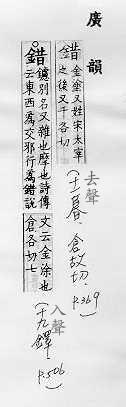 廣韻
昔 金塗又姓宋太宰
之後又千各切
去聲
(十一暮,倉故切.
P.369
錯
鑢別名又雜也摩也詩傳
云東西為交邪行為錯說
文云金涂也
倉各切七
入聲
(十九鐸.
P.506